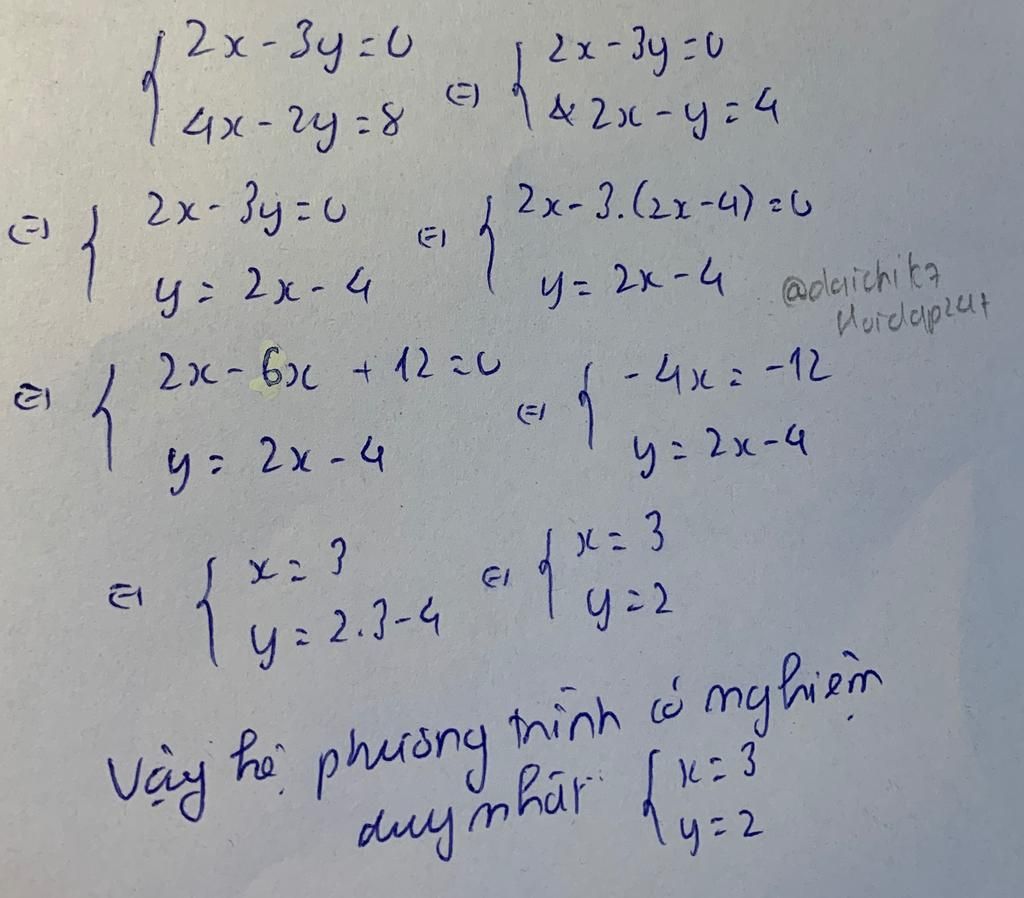 { 2x - 3y = 0 (=) { 2x - 3y = 0
4x - 2y = 8 2x - y = 4
(=) { 2x - 3y = 0 (=) { 2x - 3.(2x - 4) = 0
y = 2x - 4 y = 2x - 4
@daichik7
Hoidap247
(=) { 2x - 6x + 12 = 0 (=) { -4x = -12
y = 2x - 4 y = 2x - 4
(=) { x = 3 (=) { x = 3
y = 2.3 - 4 y = 2
Vậy hệ phương trình có nghiệm
duy nhất { x = 3
y = 2